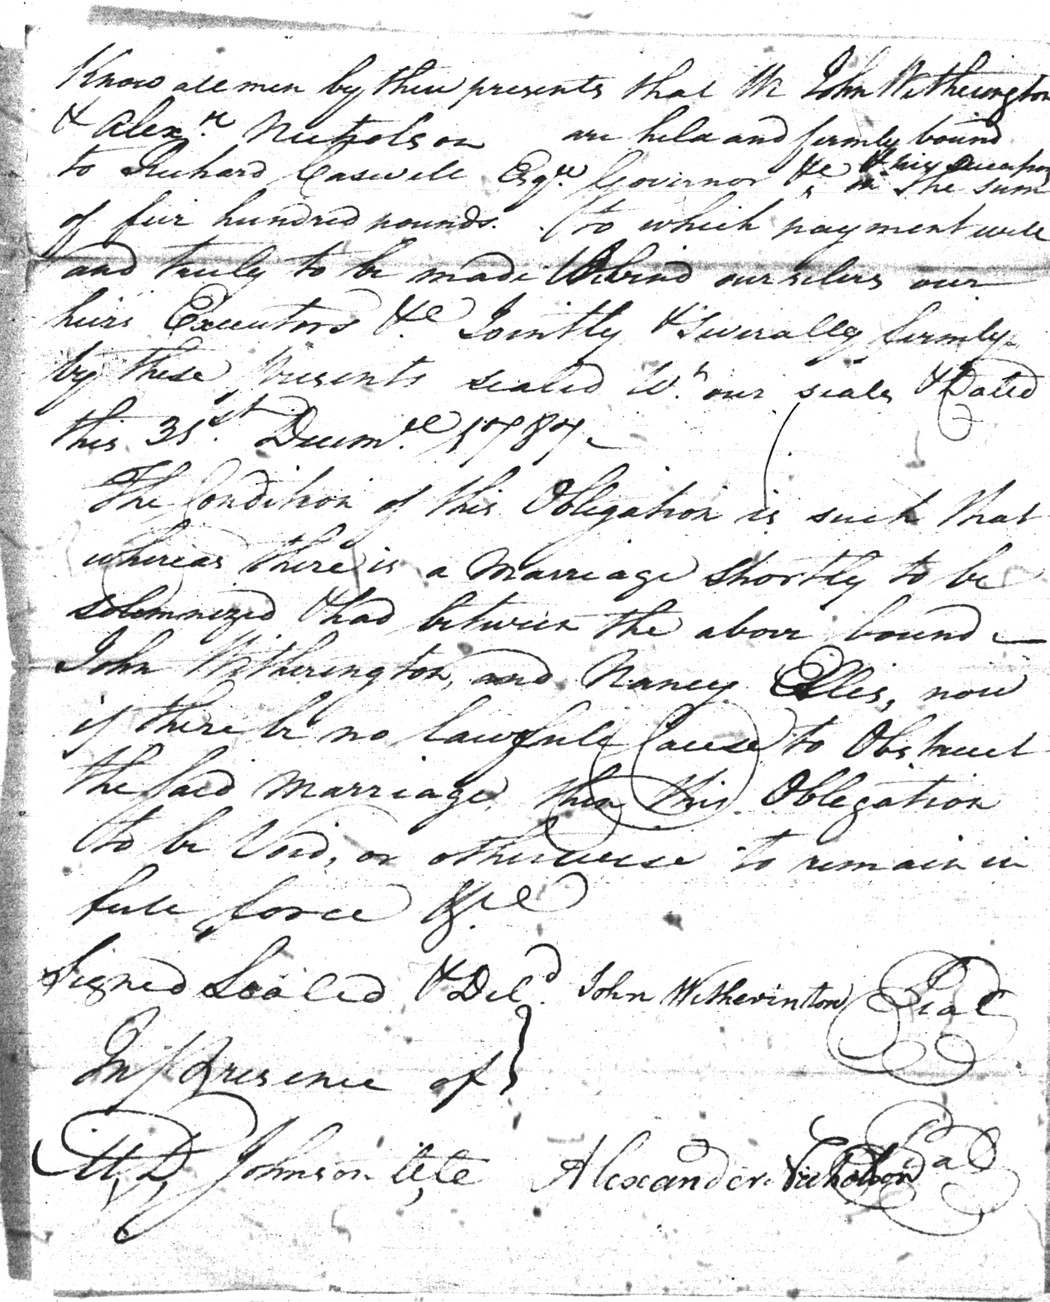 Know all men by these presents that We John Witherington
& Alexr. Nicholson are held and firmly bound
& his Successors
to Richard Caswell Esqr. Governor &c in the sum
of five hundred pounds. to which payment well
and truly to be made We bind ourselves our
heirs Executors &c Jointly & Severally firmly
by these Presents sealed Wth our seals & Dated
this 31st. Decemr. 1787.
The Condition of this Obligation is such that
whereas there is a Marriage shortly to be
solemnized & had between the above bound
John Witherington, and Nancy Ellis, now
if there be no lawfull Cause to Obstruct
the said Marriage then this Obligation
to be Void, or otherwise to remain in
full force &c
Signed Sealed & Deld. John Witherinton Seal
In Presence of
Johnson Alexander Nicholson Seal